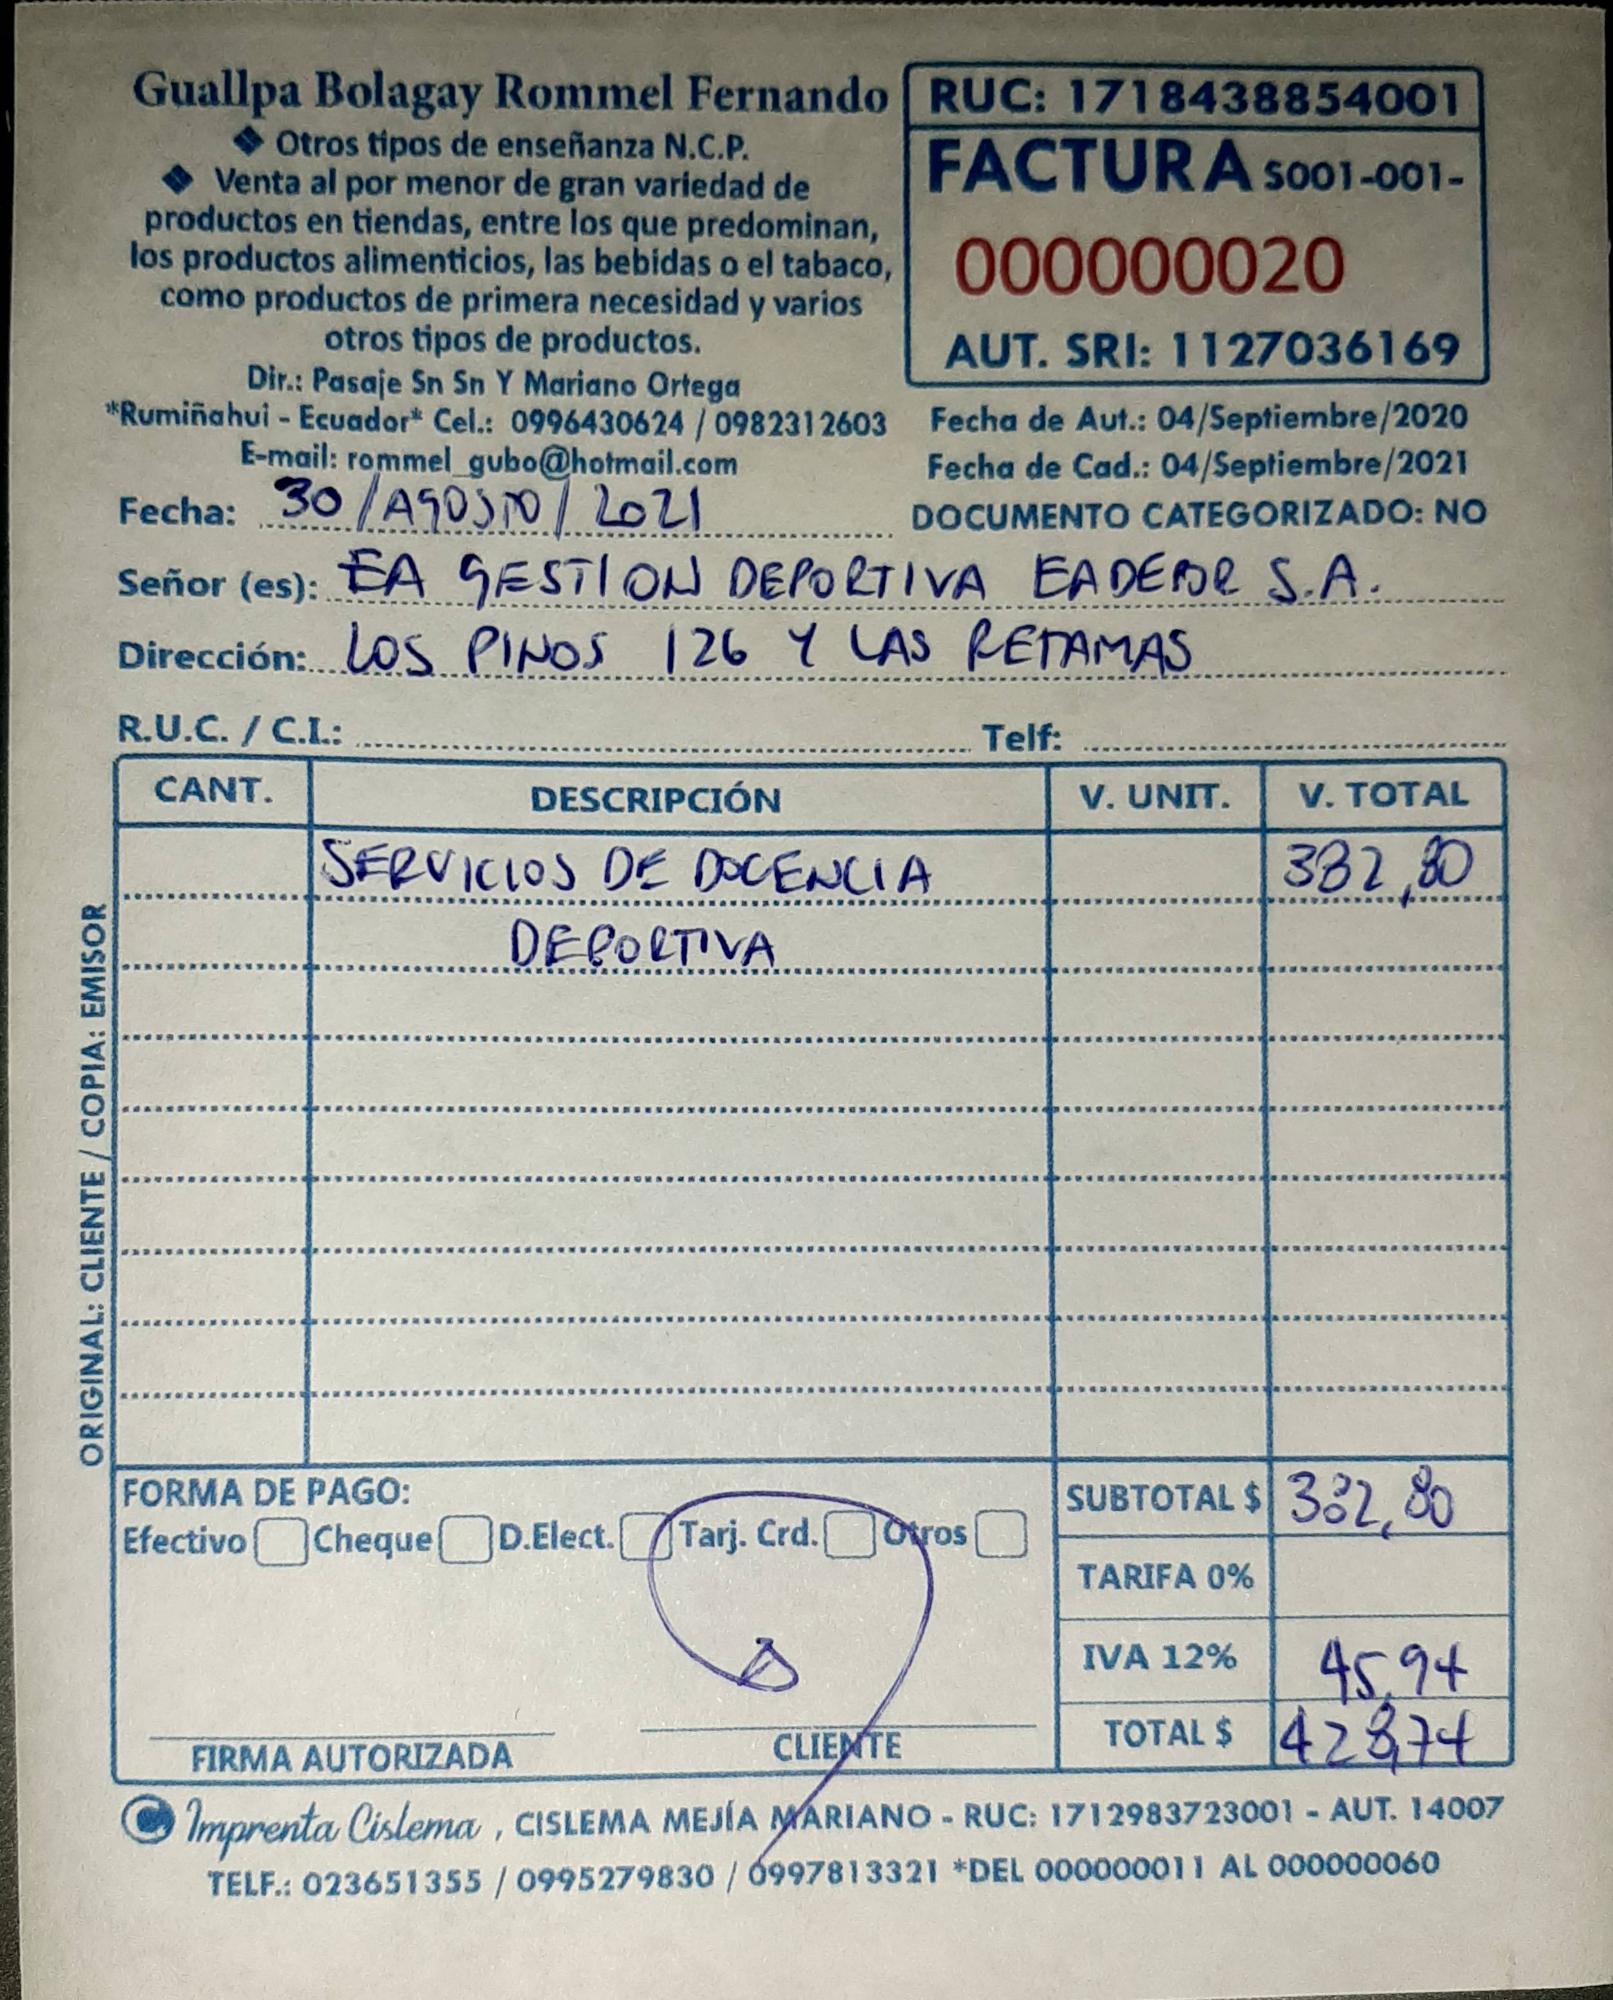 Guallpa Bolagay Rommel Fernando
❖ Otros tipos de enseñanza N.C.P.
❖ Venta al por menor de gran variedad de
productos en tiendas, entre los que predominan,
los productos alimenticios, las bebidas o el tabaco,
como productos de primera necesidad y varios
otros tipos de productos.
Dir.: Pasaje Sn Sn Y Mariano Ortega
*Rumiñahui - Ecuador* Cel.: 0996430624 / 0982312603
E-mail: rommel_gubo@hotmail.com
RUC: 1718438854001
FACTURA S001-001-
000000020
AUT. SRI: 1127036169
Fecha de Aut.: 04/Septiembre/2020
Fecha de Cad.: 04/Septiembre/2021
DOCUMENTO CATEGORIZADO: NO
Fecha: 30/AGOSTO/2021
Señor (es): EA GESTION DEPORTIVA S.A.
Dirección: LOS PINOS 126 Y LAS RETAMAS
R.U.C. / C.I.: Telf:
CANT. DESCRIPCIÓN V. UNIT. V. TOTAL
SERVICIOS DE DOCENCIA 382,80
DEPORTIVA
ORIGINAL: CLIENTE / COPIA: EMISOR
FORMA DE PAGO:
Efectivo Cheque D.Elect. Tarj. Crd. Otros
SUBTOTAL $ 382,80
TARIFA 0%
IVA 12% 45,94
TOTAL $ 428,74
FIRMA AUTORIZADA CLIENTE
Imprenta Cislema, CISLEMA MEJÍA MARIANO - RUC: 1712983723001 - AUT. 14007
TELF.: 023651355 / 0995279830 / 0997813321 *DEL 000000011 AL 000000060